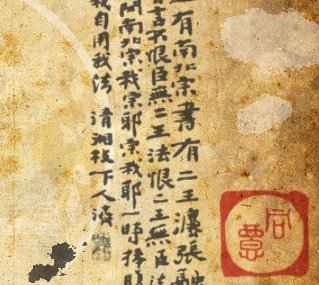 有南北宗書有二王灋張融
言不恨臣無二王法恨二王無臣法
問南北宗我宗耶宗我耶一時捧腹
我自用我法 清湘枝下人濟